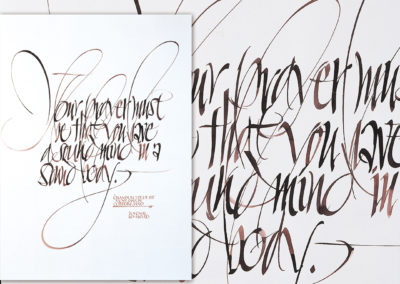 Your prayer must
be that you have
a sound mind in a
sound body.
ur prayer must
that you have
sound mind in
body.